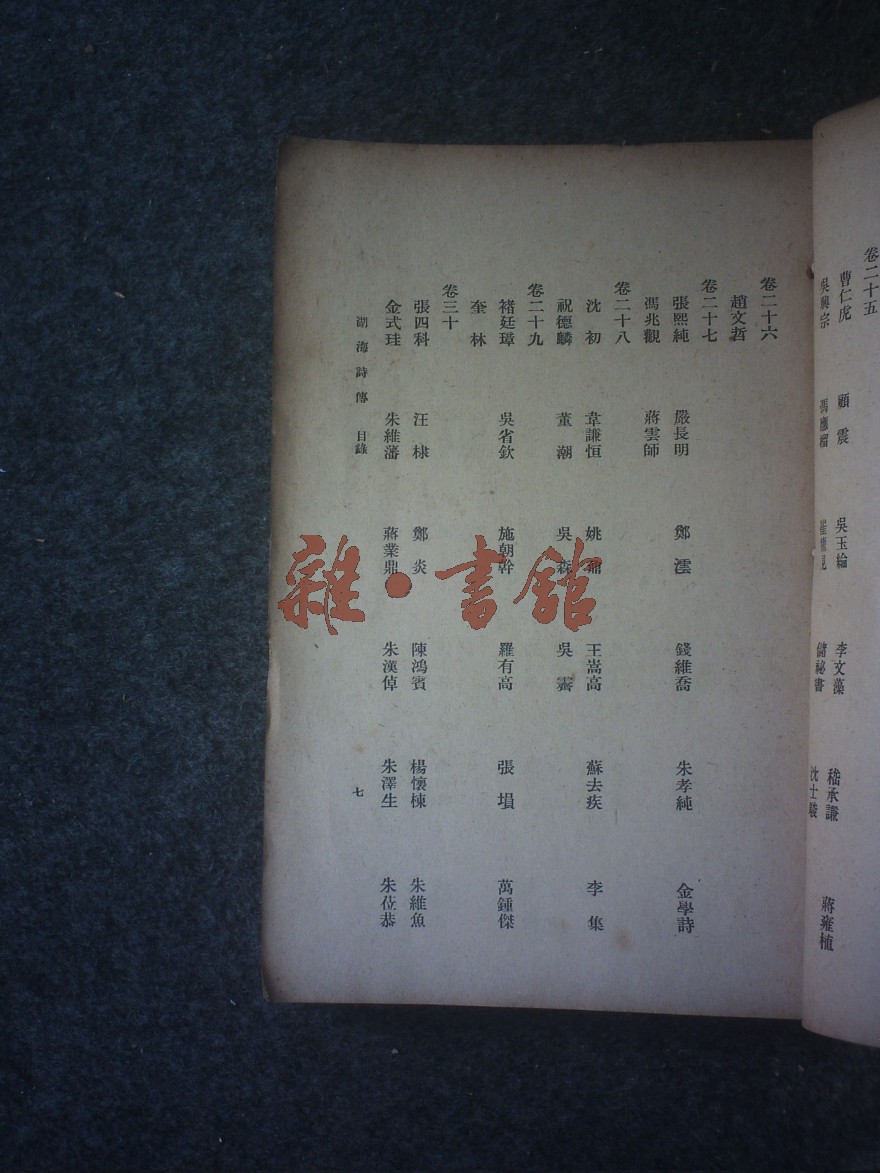 卷二十五
曹仁虎 顧震 吳玉綸 李文藻 嵇承謙 蔣雍植
吳興宗 馮應榴 儲祕書 沈士駿
卷二十六
趙文哲
卷二十七
張熙純 嚴長明 鄭澐 錢維喬 朱孝純 金學詩
馮兆觀 蔣雲師
卷二十八
沈初 韋謙恒 姚鼐 王嵩高 蘇去疾 李集
祝德麟 董潮 吳森 吳霽
卷二十九
褚廷璋 吳省欽 施朝幹 羅有高 張塤 萬鍾傑
奎林
卷三十
張四科 汪棣 鄭炎 陳鴻賓 楊懷棟 朱維魚
金式珪 朱維藩 蔣業鼎 朱漢倬 朱澤生 朱莅恭
湖海詩傳 目錄 七
雜·書館